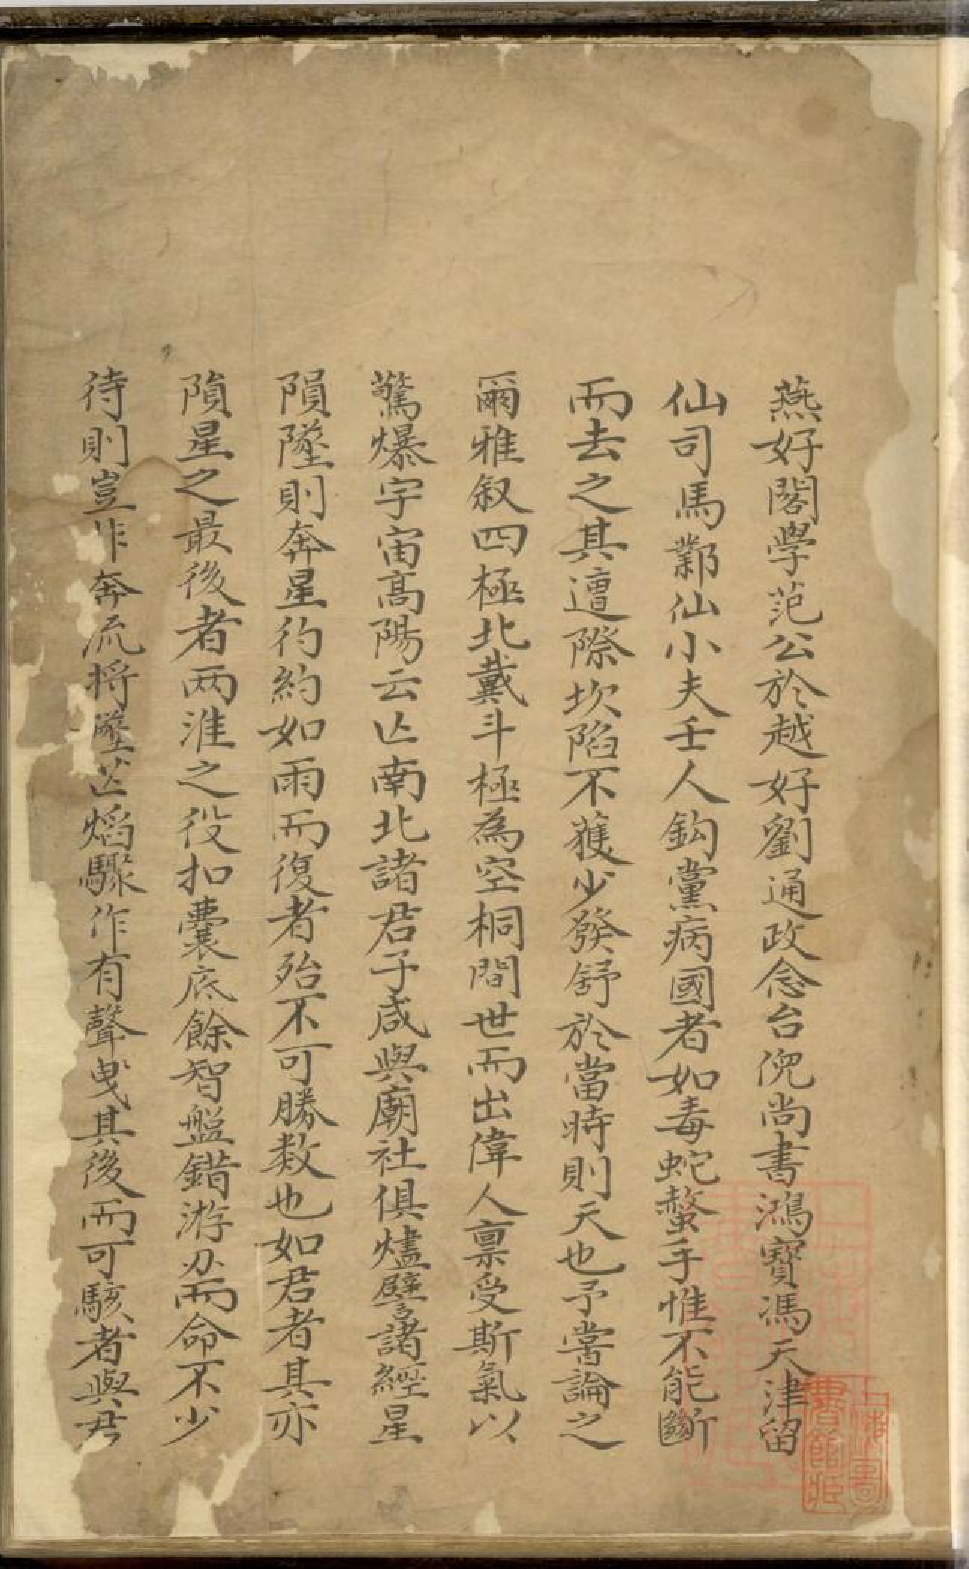 燕好閣學范公於越好劉通政念台倪尚書鴻寶馮天津留
仙司馬鄴仙小夫壬人鈎黨病國者如毒蛇螫手惟不能斷
而去之其遭際坎陷不獲少發舒於當時則天也予嘗論之
爾雅叙四極北戴斗極為空桐間世而出偉人禀受斯氣以
驚爆宇宙高陽云亾南北諸君子咸與廟社俱燼譬諸經星
隕墜則奔星彴約如雨而復者殆不可勝数也如君者其亦
隕星之最後者两淮之役扣囊底餘智盤錯游刃而命不少
待則豈非奔流将墜芒熖驟作有聲曵其後而可駭者與君
上海圖書館藏